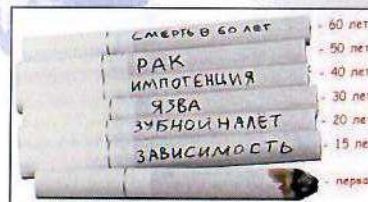 СМЕРТЬ В 60 ЛЕТ - 60 лет
РАК - 50 лет
ИМПОТЕНЦИЯ - 40 лет
ЯЗВА - 30 лет
ЗУБНОЙ НАЛЕТ - 20 лет
ЗАВИСИМОСТЬ - 15 ле
- перва